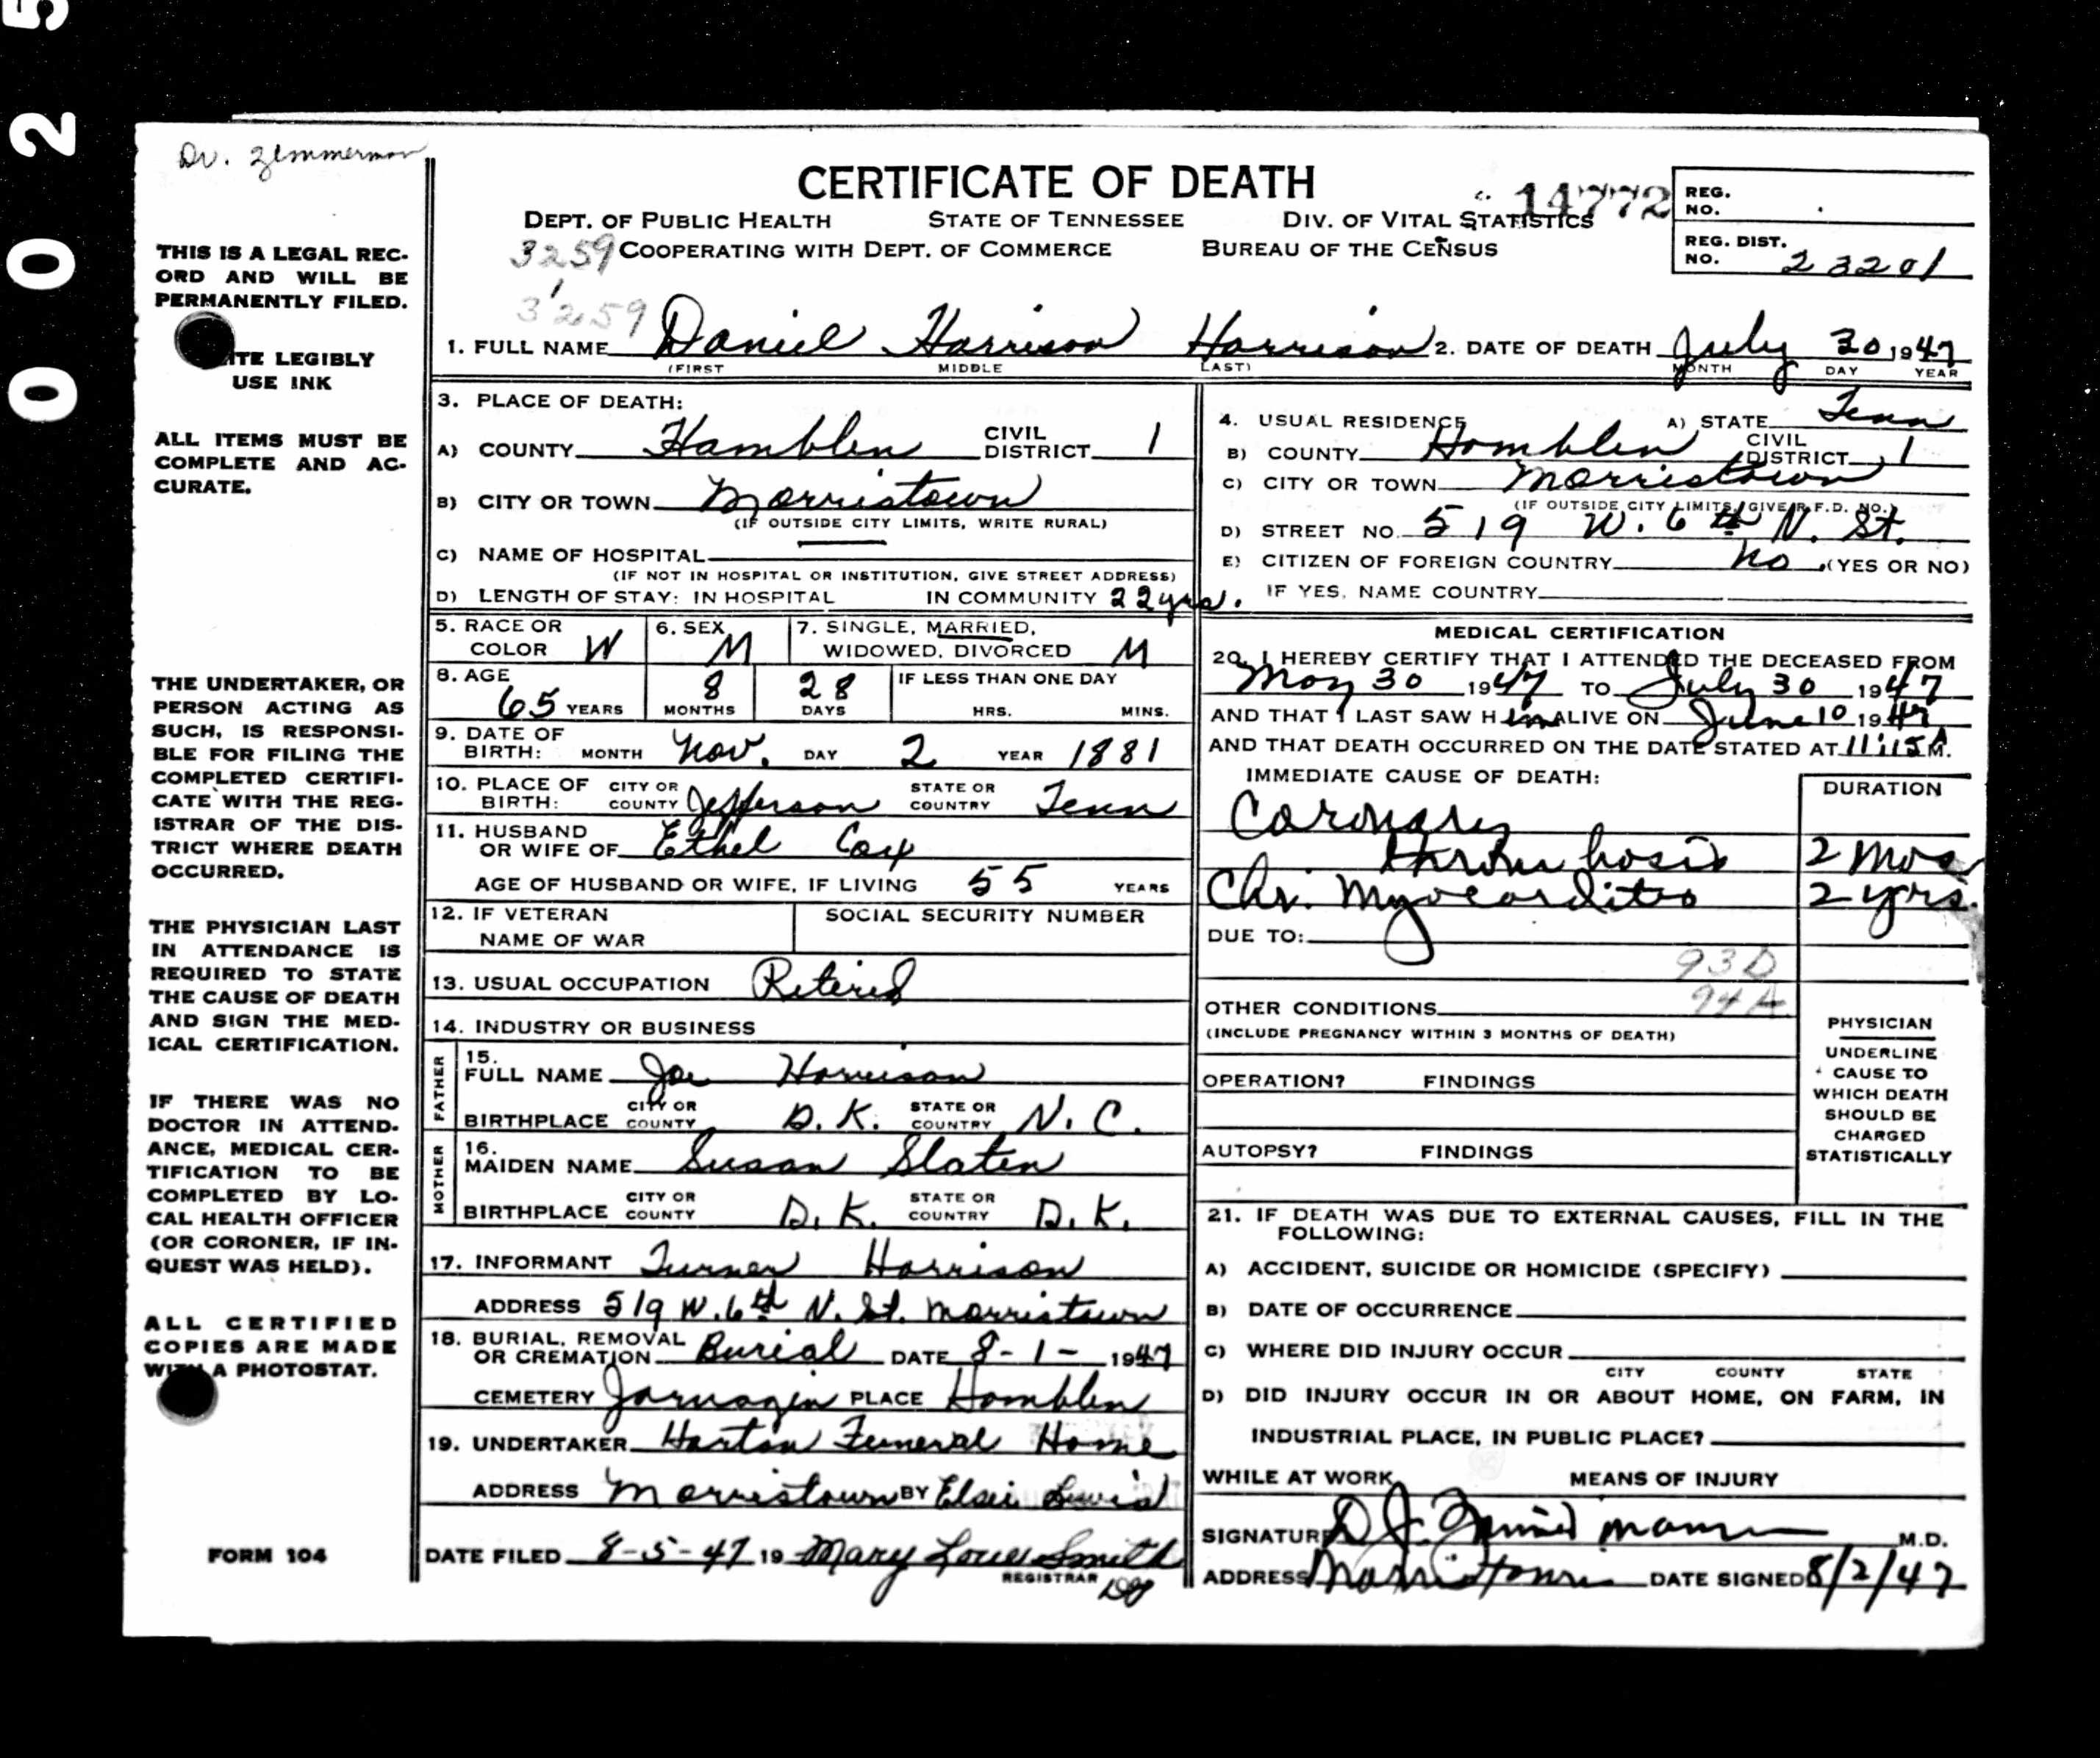 00025
Dr. Zimmerman
THIS IS A LEGAL REC-
ORD AND WILL BE
PERMANENTLY FILED.
ITE LEGIBLY
USE INK
ALL ITEMS MUST BE
COMPLETE AND AC-
CURATE.
THE UNDERTAKER, OR
PERSON ACTING AS
SUCH, IS RESPONSI-
BLE FOR FILING THE
COMPLETED CERTIFI-
CATE WITH THE REG-
ISTRAR OF THE DIS-
TRICT WHERE DEATH
OCCURRED.
THE PHYSICIAN LAST
IN ATTENDANCE IS
REQUIRED TO STATE
THE CAUSE OF DEATH
AND SIGN THE MED-
ICAL CERTIFICATION.
IF THERE WAS NO
DOCTOR IN ATTEND-
ANCE, MEDICAL CER-
TIFICATION TO BE
COMPLETED BY LO-
CAL HEALTH OFFICER
(OR CORONER, IF IN-
QUEST WAS HELD).
ALL CERTIFIED
COPIES ARE MADE
WITH A PHOTOSTAT.
FORM 104
CERTIFICATE OF DEATH
14772
REG. NO.
DEPT. OF PUBLIC HEALTH STATE OF TENNESSEE DIV. OF VITAL STATISTICS
3259 COOPERATING WITH DEPT. OF COMMERCE BUREAU OF THE CENSUS
REG. DIST. NO. 23201
3259
1. FULL NAME Daniel Harrison Harrison 2. DATE OF DEATH July 30, 1947
(FIRST MIDDLE LAST) MONTH DAY YEAR
3. PLACE OF DEATH:
A) COUNTY Hamblen CIVIL DISTRICT 1
B) CITY OR TOWN Morristown
(IF OUTSIDE CITY LIMITS, WRITE RURAL)
C) NAME OF HOSPITAL
(IF NOT IN HOSPITAL OR INSTITUTION, GIVE STREET ADDRESS)
D) LENGTH OF STAY: IN HOSPITAL IN COMMUNITY 22 yrs.
4. USUAL RESIDENCE A) STATE Tenn
B) COUNTY Hamblen CIVIL DISTRICT 1
C) CITY OR TOWN Morristown
(IF OUTSIDE CITY LIMITS, GIVE R.F.D. NO.)
D) STREET NO. 519 W. 6th N. St.
E) CITIZEN OF FOREIGN COUNTRY No (YES OR NO)
IF YES, NAME COUNTRY
5. RACE OR COLOR W 6. SEX M 7. SINGLE, MARRIED, WIDOWED, DIVORCED M
8. AGE 65 YEARS 8 MONTHS 28 DAYS IF LESS THAN ONE DAY HRS. MINS.
9. DATE OF BIRTH: MONTH Nov. DAY 2 YEAR 1881
10. PLACE OF BIRTH: CITY OR COUNTY Jefferson STATE OR COUNTRY Tenn
11. HUSBAND OR WIFE OF Ethel Cox
AGE OF HUSBAND OR WIFE, IF LIVING 55 YEARS
12. IF VETERAN NAME OF WAR SOCIAL SECURITY NUMBER
13. USUAL OCCUPATION Retired
14. INDUSTRY OR BUSINESS
FATHER
15. FULL NAME Joe Harrison
BIRTHPLACE CITY OR COUNTY D.K. STATE OR COUNTRY N.C.
MOTHER
16. MAIDEN NAME Susan Slaten
BIRTHPLACE CITY OR COUNTY D.K. STATE OR COUNTRY D.K.
17. INFORMANT Turner Harrison
ADDRESS 519 W. 6th N. St. Morristown
18. BURIAL, REMOVAL OR CREMATION Burial DATE 8-1-1947
CEMETERY Jarnagin PLACE Hamblen
19. UNDERTAKER Harton Funeral Home
ADDRESS Morristown BY Elsie Lewis
DATE FILED 8-5-47 19 Mary Love Smith
REGISTRAR
MEDICAL CERTIFICATION
20. I HEREBY CERTIFY THAT I ATTENDED THE DECEASED FROM
May 30 1947 TO July 30 1947
AND THAT I LAST SAW H im ALIVE ON June 10 1947
AND THAT DEATH OCCURRED ON THE DATE STATED AT 11:15 A M.
IMMEDIATE CAUSE OF DEATH: DURATION
Coronary
thrombosis 2 mos
Chr. Myocarditis 2 yrs.
DUE TO:
93D
OTHER CONDITIONS 94A
(INCLUDE PREGNANCY WITHIN 3 MONTHS OF DEATH)
OPERATION? FINDINGS
AUTOPSY? FINDINGS
PHYSICIAN
UNDERLINE
CAUSE TO
WHICH DEATH
SHOULD BE
CHARGED
STATISTICALLY
21. IF DEATH WAS DUE TO EXTERNAL CAUSES, FILL IN THE
FOLLOWING:
A) ACCIDENT, SUICIDE OR HOMICIDE (SPECIFY)
B) DATE OF OCCURRENCE
C) WHERE DID INJURY OCCUR
CITY COUNTY STATE
D) DID INJURY OCCUR IN OR ABOUT HOME, ON FARM, IN
INDUSTRIAL PLACE, IN PUBLIC PLACE?
WHILE AT WORK MEANS OF INJURY
SIGNATURE D J. Zimmerman M.D.
ADDRESS Morristown DATE SIGNED 8/2/47